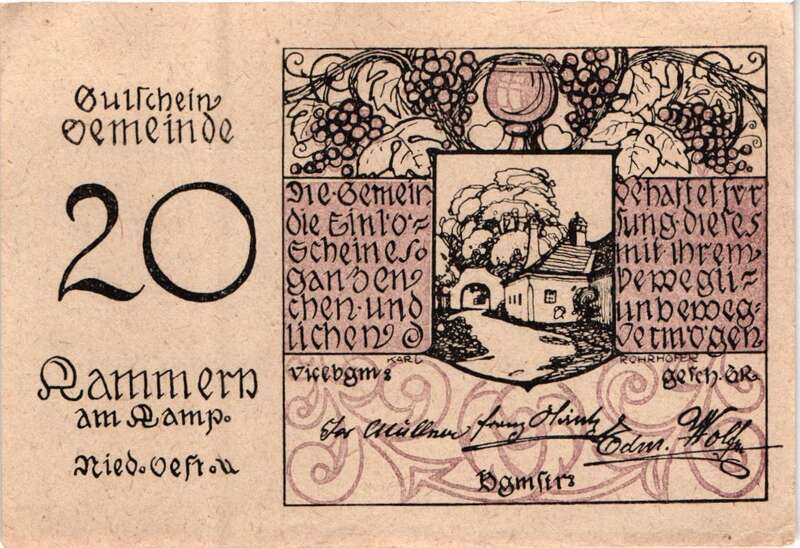 Gutschein
Gemeinde
20
Kammern
am Kamp.
Nied. Oest. u
Die Gemein de haftet für
die Einlö= sung dieses
Scheines mit ihrem
ganzen bewegli=
chen und unbeweg=
lichen Vermögen
KARL ROHRHOFER
Vicebgm: gesch. GR.
Müllner Franz Edm.
Bgmstr: